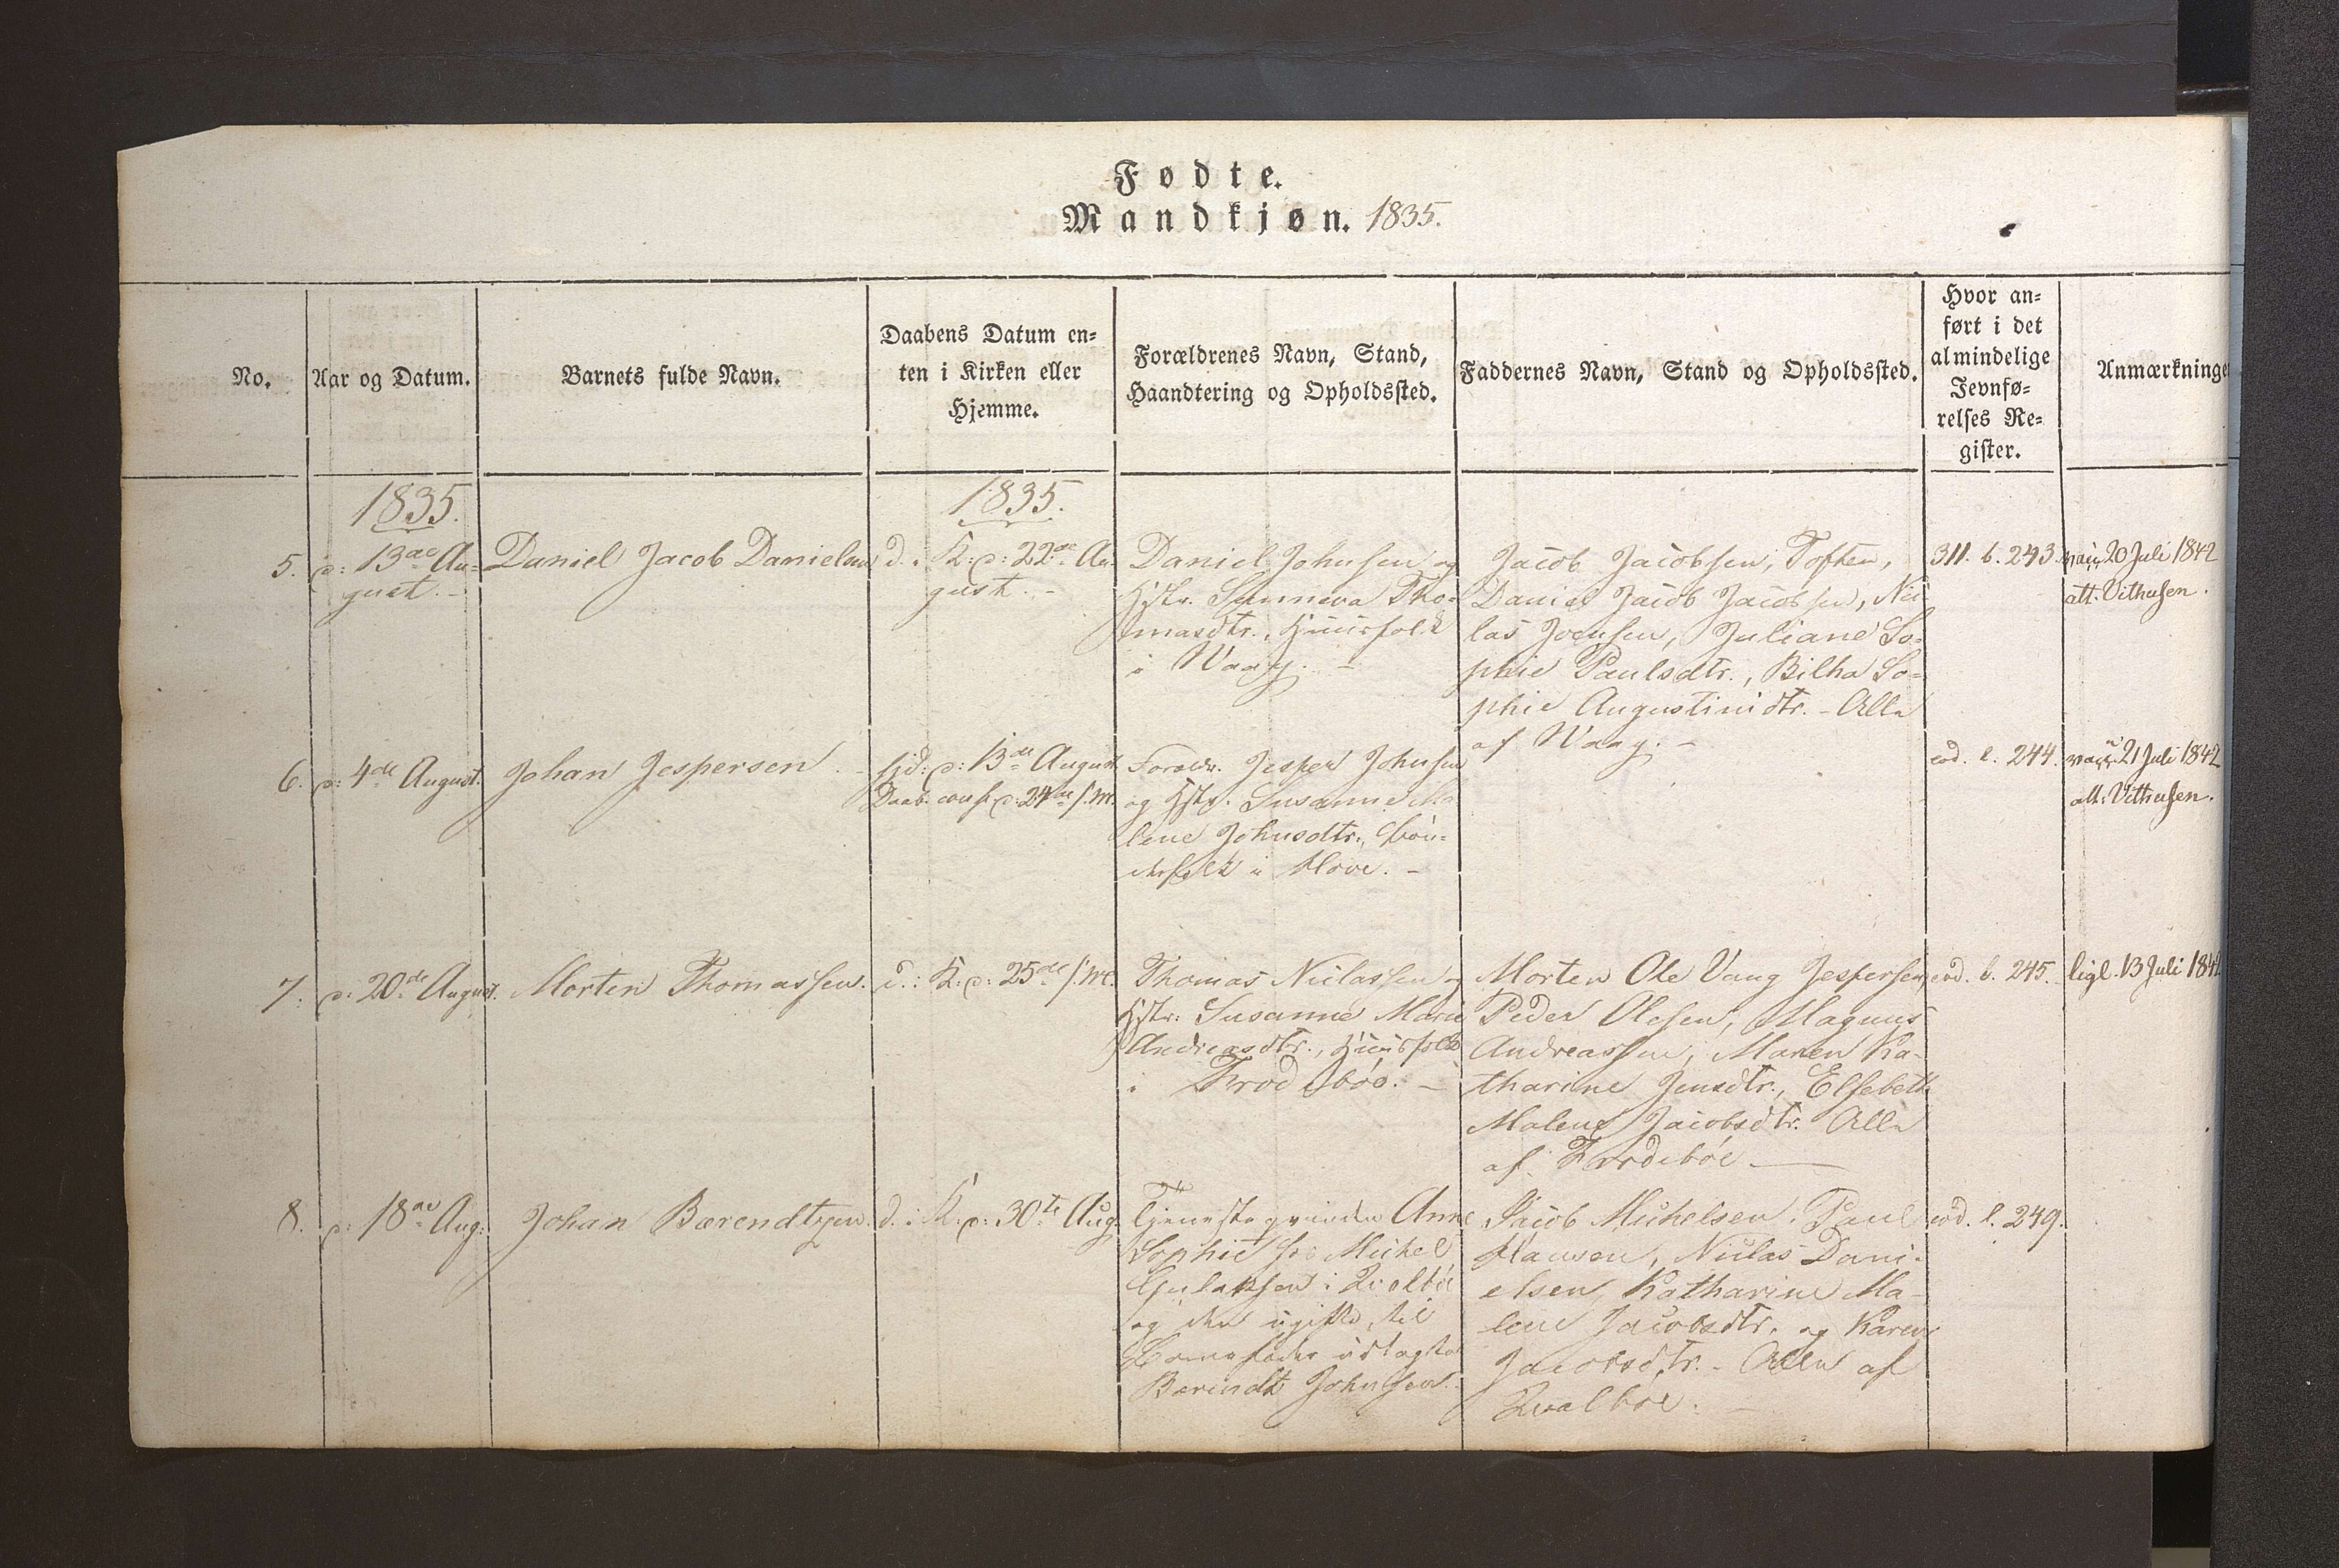 Fødte.
Mandkjøn. 1835.
No.
Aar og Datum.
Barnets fulde Navn.
Daabens Datum en-
ten i Kirken eller
Hjemme.
Forældrenes Navn, Stand,
Haandtering og Opholdssted.
Faddernes Navn, Stand og Opholdssted.
Hvor an-
ført i det
almindelige
Jevnfø-
relses Re-
gister.
Anmærkninge
1835.
1835.
5.
d: 13de Au-
gust.-
Daniel Jacob Danielsen
d. i K: d: 22de Au-
gust.-
Daniel Johnsen og
Hstr. Sunneva Tho-
masdtr., Huusfolk
i Waag.-
Jacob Jacobsen, Toften,
Daniel Jacob Jacobsen, Nic-
las Joensen, Juliane So-
phie Paulsdtr., Bilha So-
phie Augustinidtr.- Alle
af Waag.-
311. b. 243.
vacc 20 Juli 1842
att. Vithusen.
6.
d: 4de August.
Johan Jespersen.
hjd: d: 13de August
Daab. conf. d: 24de s. M.
Forældr. Jesper Johnsen
og Hstr. Susanne Ma-
lene Johnsdtr., Bøn-
derfolk i Hove.-
eod. l. 244.
vacc 21 Juli 1842
att. Vithusen.
7.
d: 20de August.
Morten Thomassen.
d. i K: d: 25de s. M.
Thomas Niclassen og
Hstr. Susanne Marie
Andreasdtr., Huusfolk
i Frodebøe.-
Morten Ole Vang Jespersen,
Peder Olesen, Magnus
Andreassen, Maren Ka-
tharine Jensdtr., Elsebeth
Malene Jacobsdtr. Alle
af Frodebøe
eod. b. 245.
ligl. 13 Juli 1842
8.
d: 18de Aug:
Johan Bærendtzen.
d. i K: d: 30te Aug.
Tjenesteqvinden Anne
Sophie hos Michel
i Qvalbøe
og den ugifte, til
Barnefader udlagte
Bærendt Johnsen.
Jacob Michelsen, Paul
Hansen, Niclas Dani-
elsen, Katharine Ma-
lene Jacobsdtr. og Karen
Jacobsdtr.- Alle af
Qvalboe.-
eod. l. 249.